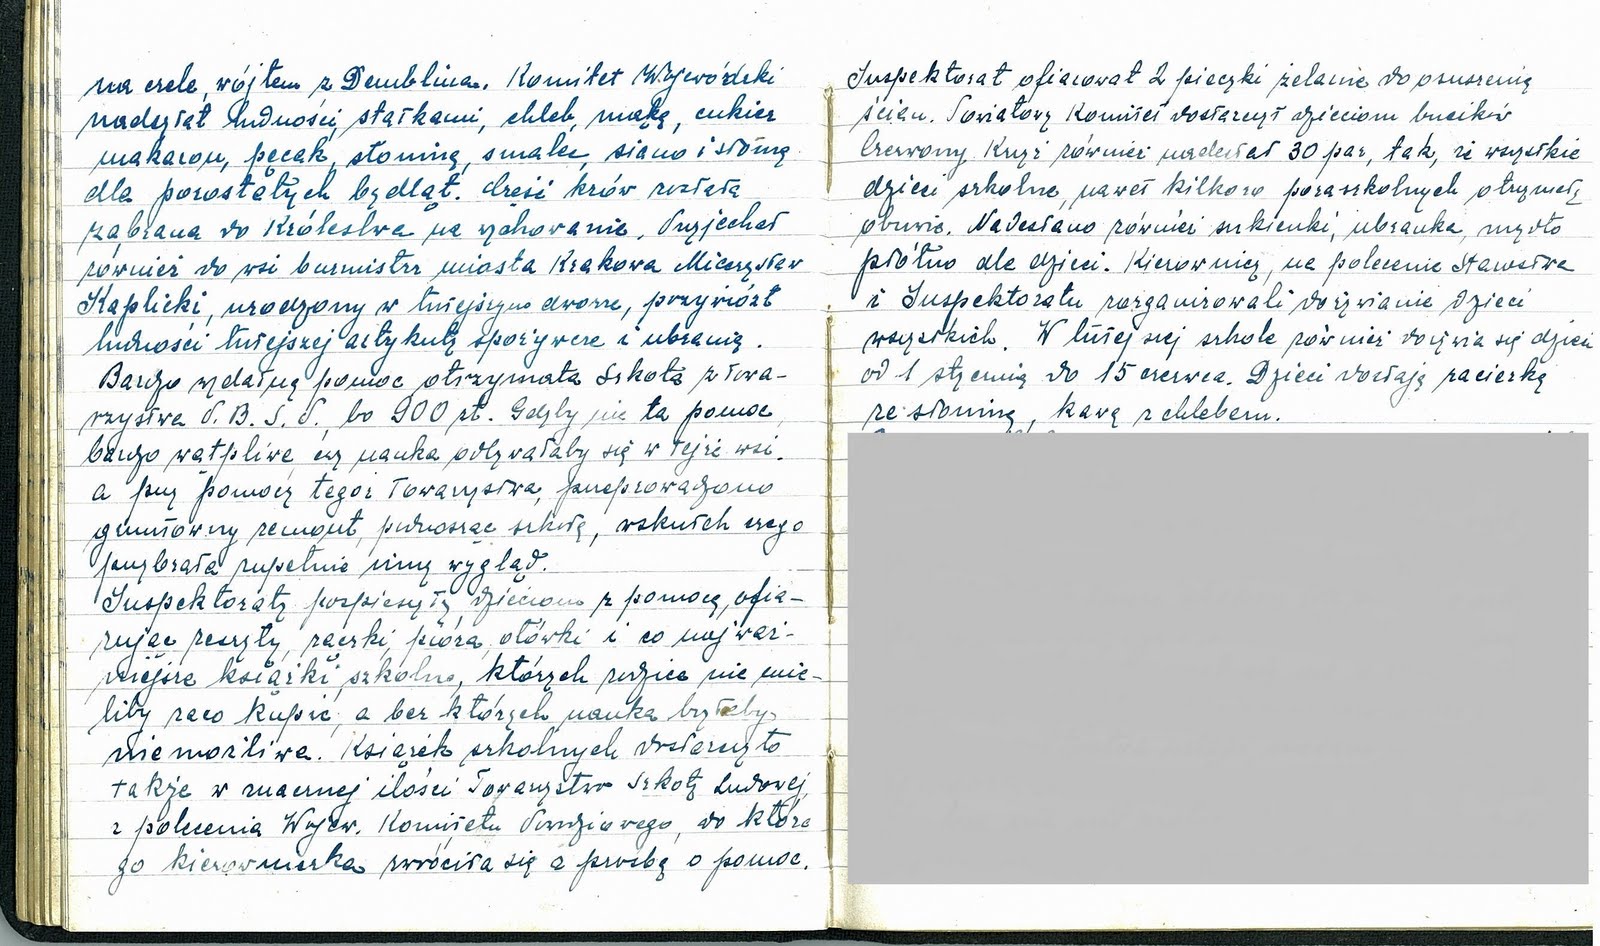 na czele, wójtem z Demblina. Komitet Wojewódzki
nadsyłał ludności statkami, chleb, mąkę, cukier
makaron, pęcak, słoninę, smalec, siano i słomę
dla pozostałych bydląt. Część krów została
zabrana do Królestwa na wychowanie. Przyjechał
również do wsi burmistrz miasta Krakowa Mieczysław
Kaplicki, urodzony w tutejszym dworze, przywiózł
ludności tutejszej artykuły spożywcze i ubrania.
Bardzo wydatną pomoc otrzymała Szkoła z towa-
rzystwa P. B. S. P., bo 900 zł. Gdyby nie ta pomoc
bardzo wątpliwe, czy nauka odbywałaby się w tejże wsi.
a przy pomocy tegoż Towarzystwa, przeprowadzono
gruntowny remont, podnosząc szkołę, wskutek czego
przybrała zupełnie inny wygląd.
Inspektoraty pospieszyły dzieciom z pomocą, ofia-
rując zeszyty, raczki, pióra, ołówki i co najważ-
niejsze książki szkolne, których rodzice nie mie-
liby zaco kupić, a bez których nauka byłaby
niemożliwa. Książek szkolnych dostarczyło
także w znacznej ilości Towarzystwo Szkoły Ludowej,
z polecenia Wojew. Komitetu Powodziowego, do które
go kierowniczka zwróciła się z prośbą o pomoc.
Inspektorat ofiarował 2 piecyki żelazne do osuszenia
ścian. Powiatowy Komitet dostarczył dzieciom bucików
Czerwony Krzyż również nadesłał 30 par, tak, że wszystkie
dzieci szkolne, nawet kilkoro pozaszkolnych otrzymały
obuwie. Nadesłano również sukienki, ubranka, mydło
płótno dla dzieci. Kierownicy, na polecenie Starostwa
i Inspektoratu zorganizowali dożywianie dzieci
wszystkich. W tutejszej szkole również dożywia się dzieci
od 1 stycznia do 15 czerwca. Dzieci dostają zacierkę
ze słoniną, kawę z chlebem.